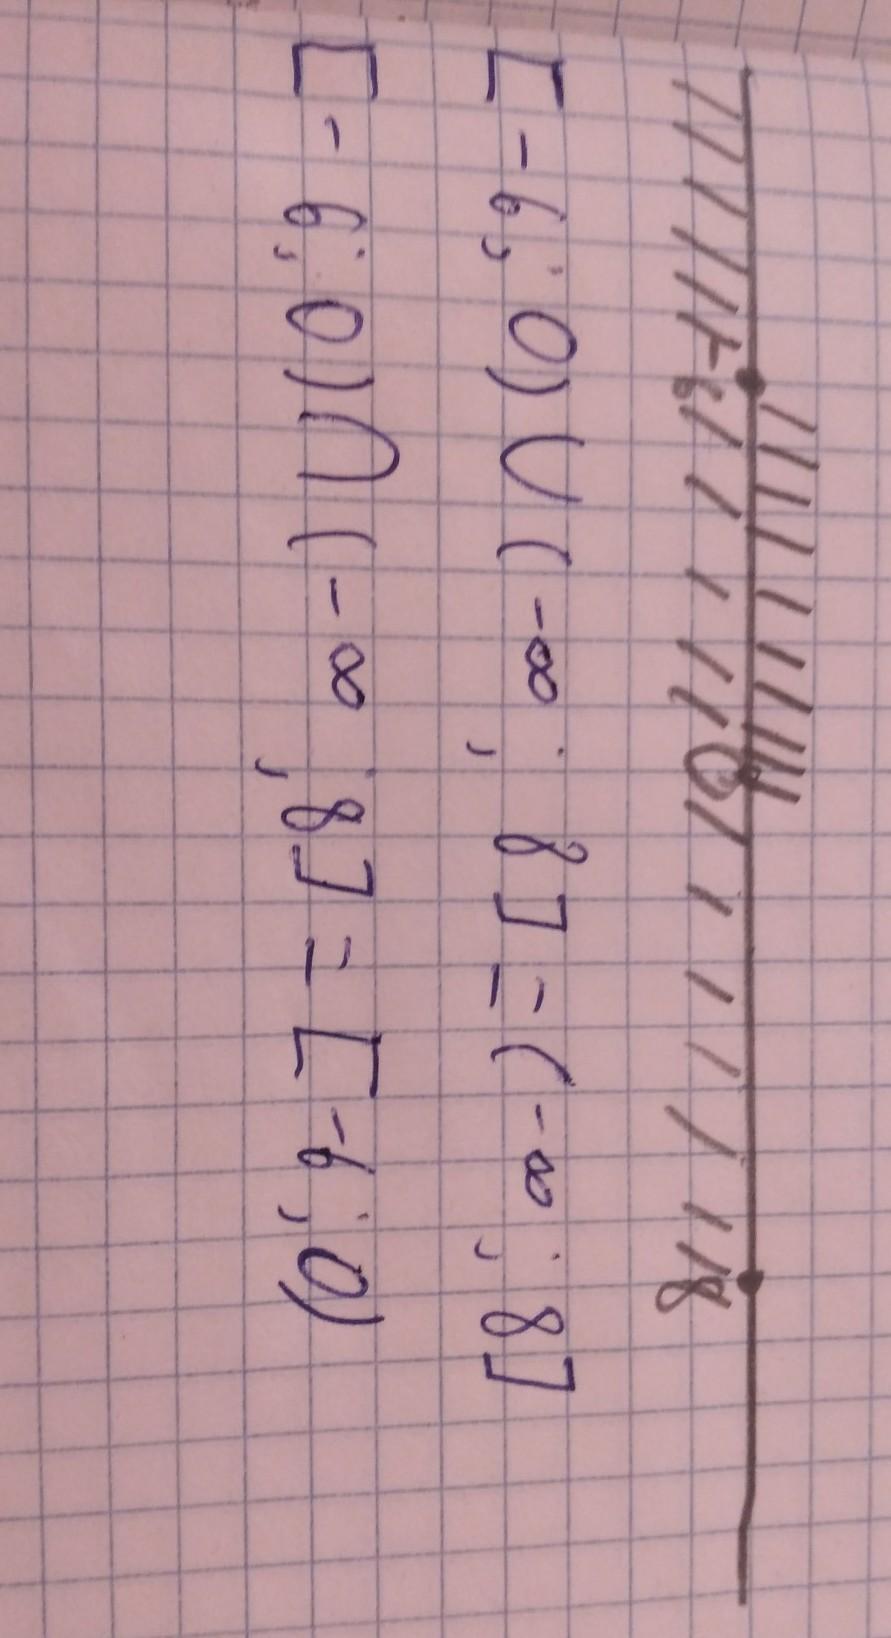 -6 0 8
[-6; 0) ∪ (-∞; 8] = (-∞; 8]
[-6; 0) ∩ (-∞; 8] = [-6; 0)